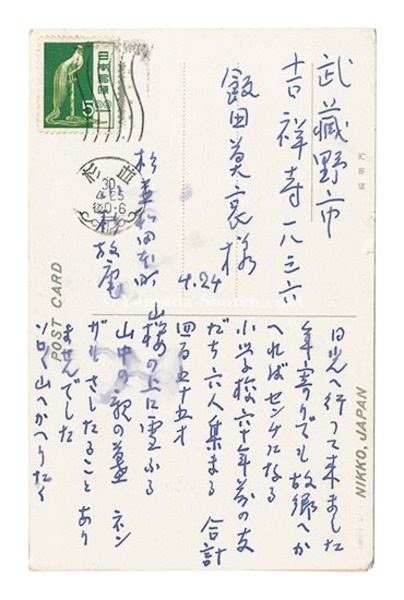 武藏野市
吉祥寺一八三六
飯田莫哀様
4.24
杉並和田本町
小杉放庵
日本郵便
500
杉並
30
4.25
後0-6
POST CARD
NIKKO, JAPAN
日光へ行って来ました
年寄りでも故郷へか
へればセンチになる
小学校六十年前の友
だち六人集まる 合計
四百五十五才
山桜の上に雪ふる
山中の親の墓 ネン
さしたることあり
ませんでした
山へかへりたく
Yamada-Shoten.com